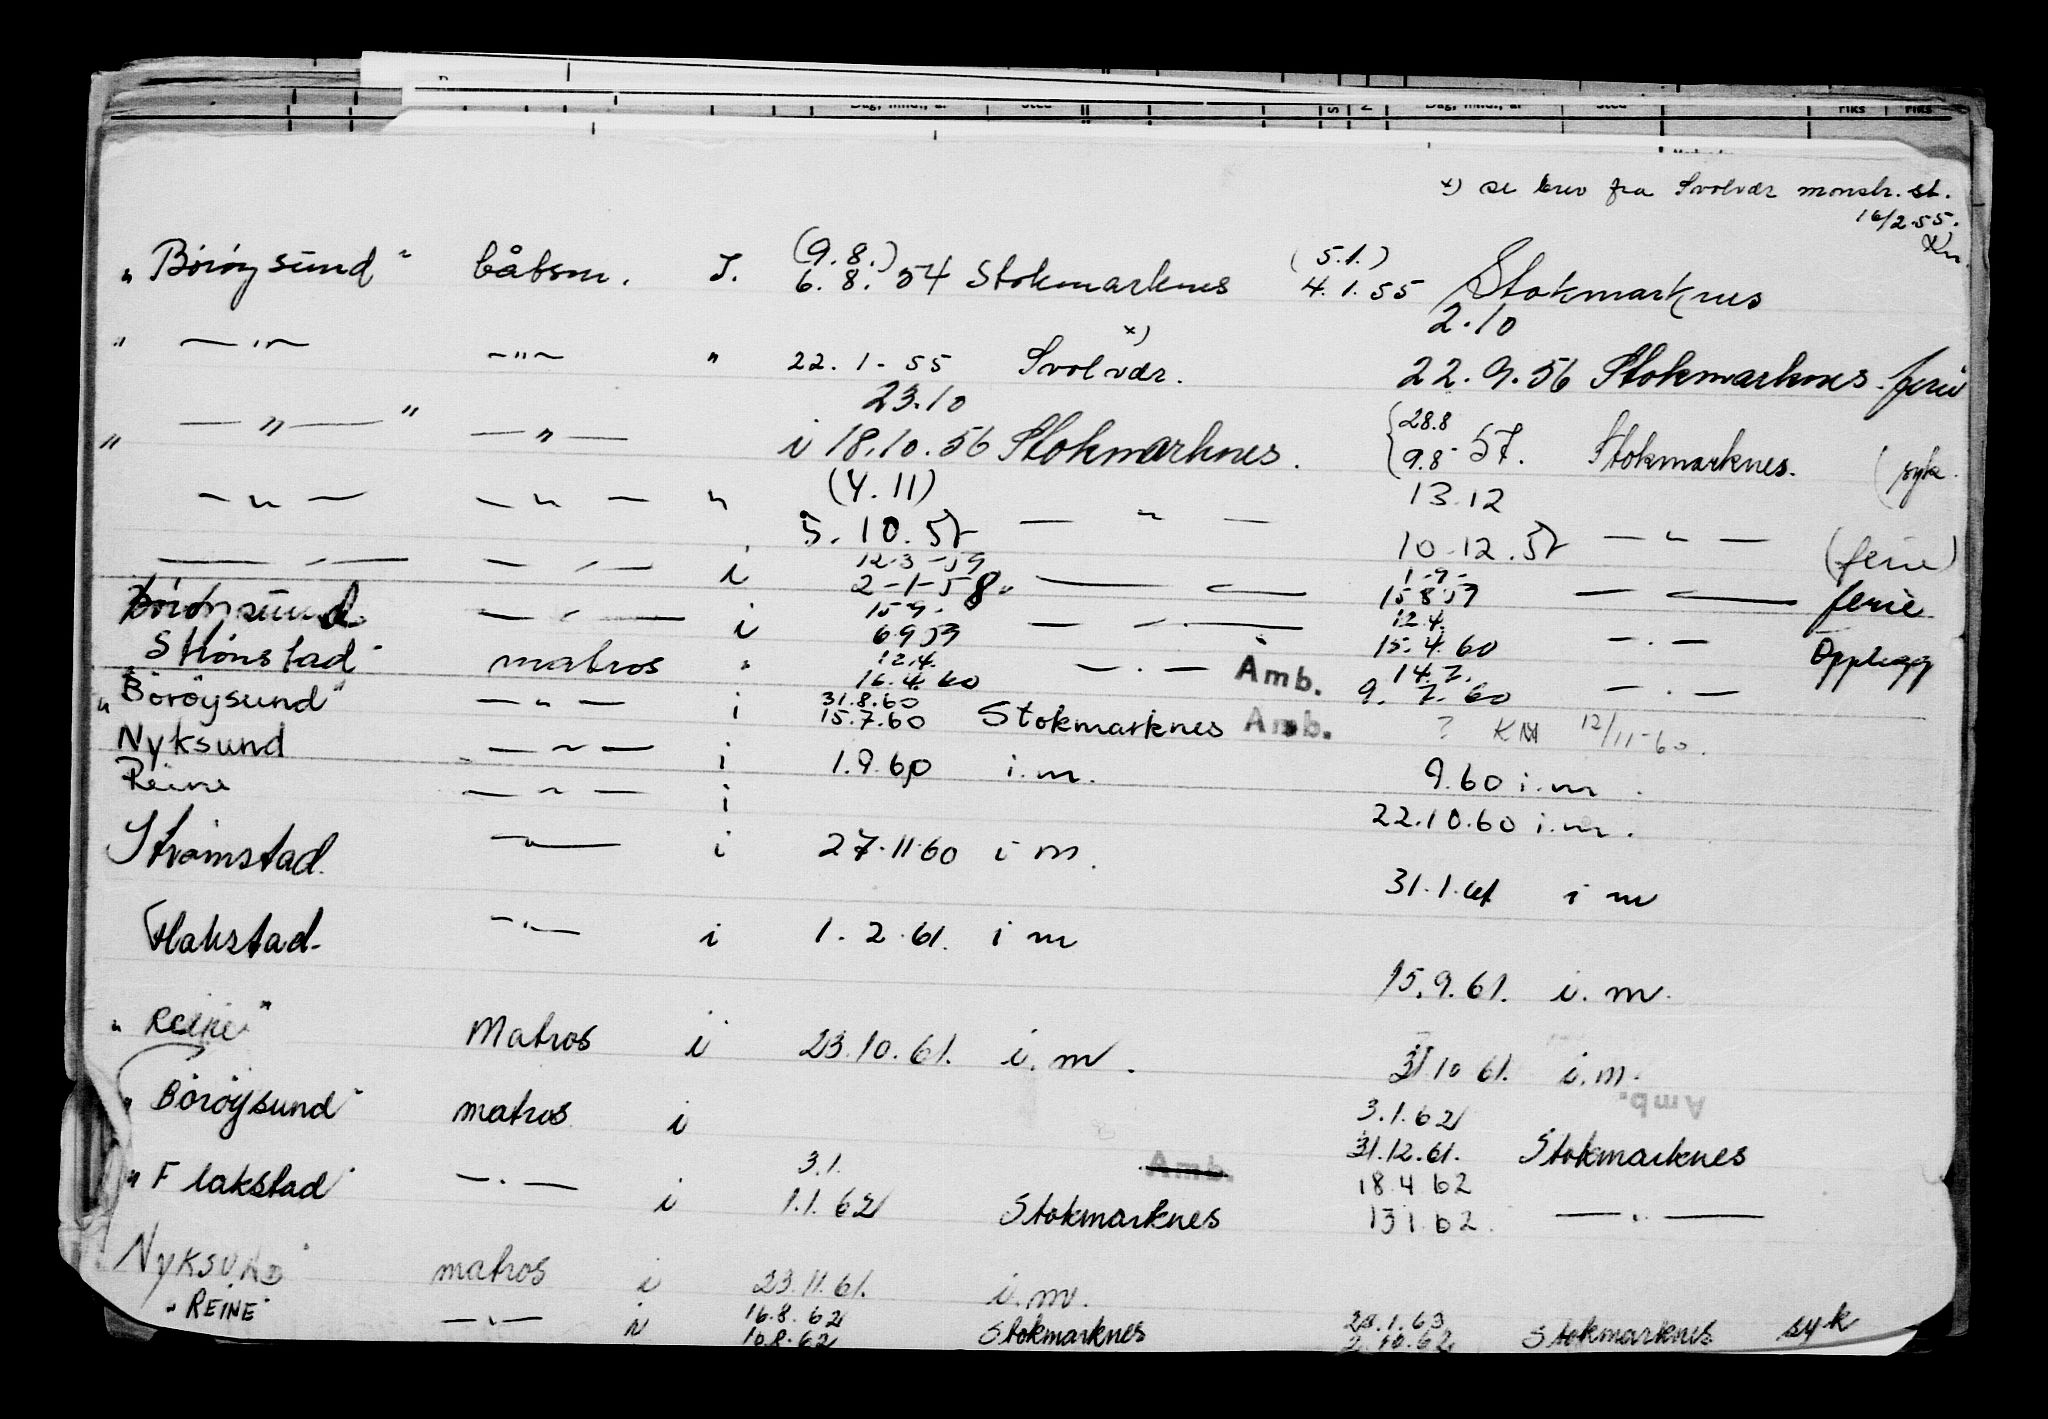 Dag, mnd., år Sted S N Dag, mnd., år Sted riks riks
x) se brev fra Svolvær mønstr. st.
16/2-55.
(9.8.) (5.1.)
"Börøysund" båtsm. I. 6.8.54 Stokmarknes 4.1.55 Stokmarknes
x) 2.10
" —"— —"— " 22.1-55 Svolvær. 22.9.56 Stokmarknes. ferie
23.10 28.8
" —"— " —"— i 18.10.56 Stokmarknes. 9.8 57. Stokmarknes. (syk
(4.11) 13.12
—"— —"— " 5.10.57 — " — 10.12.57 —"— (ferie)
12-3-59 1-9-
—"— —"— i 2-1-58. —"— 15.8.59 —"— ferie
15-9- 12.4.
Börøysund —"— i 6.9.59 —"— 15.4.60 —"— Opplegg
12.4. 14.7.
Strönstad" matros " 16.4.60 —"— Amb. 9.7.60 —"—
31.8.60
"Börøysund" —"— i 15.7.60 Stokmarknes Amb. ? KM 12/11-60.
Nyksund —"— i 1.9.60 i.m. 9.60 i.m.
Reine —"— i 22.10.60 i.m.
Strömstad. —"— i 27.11.60 i m. 31.1.61 i m
Flakstad. —"— i 1.2.61. i m 15.9.61. i.m.
"Reine" Matros i 23.10.61. i.m. 31.10.61. i.m.
Amb.
3.1.62
"Börøysund" matros i 31.12.61. Stokmarknes
3.1. Amb. 18.4.62
"Flakstad" —"— i 1.1.62 Stokmarknes 13.1.62. —"—
Nyksund" matros i 23.11.61. i.m.
16.8.62 29.1.63
"REINE" —"— i 10.8.62 Stokmarknes 2.10.62 Stokmarknes syk